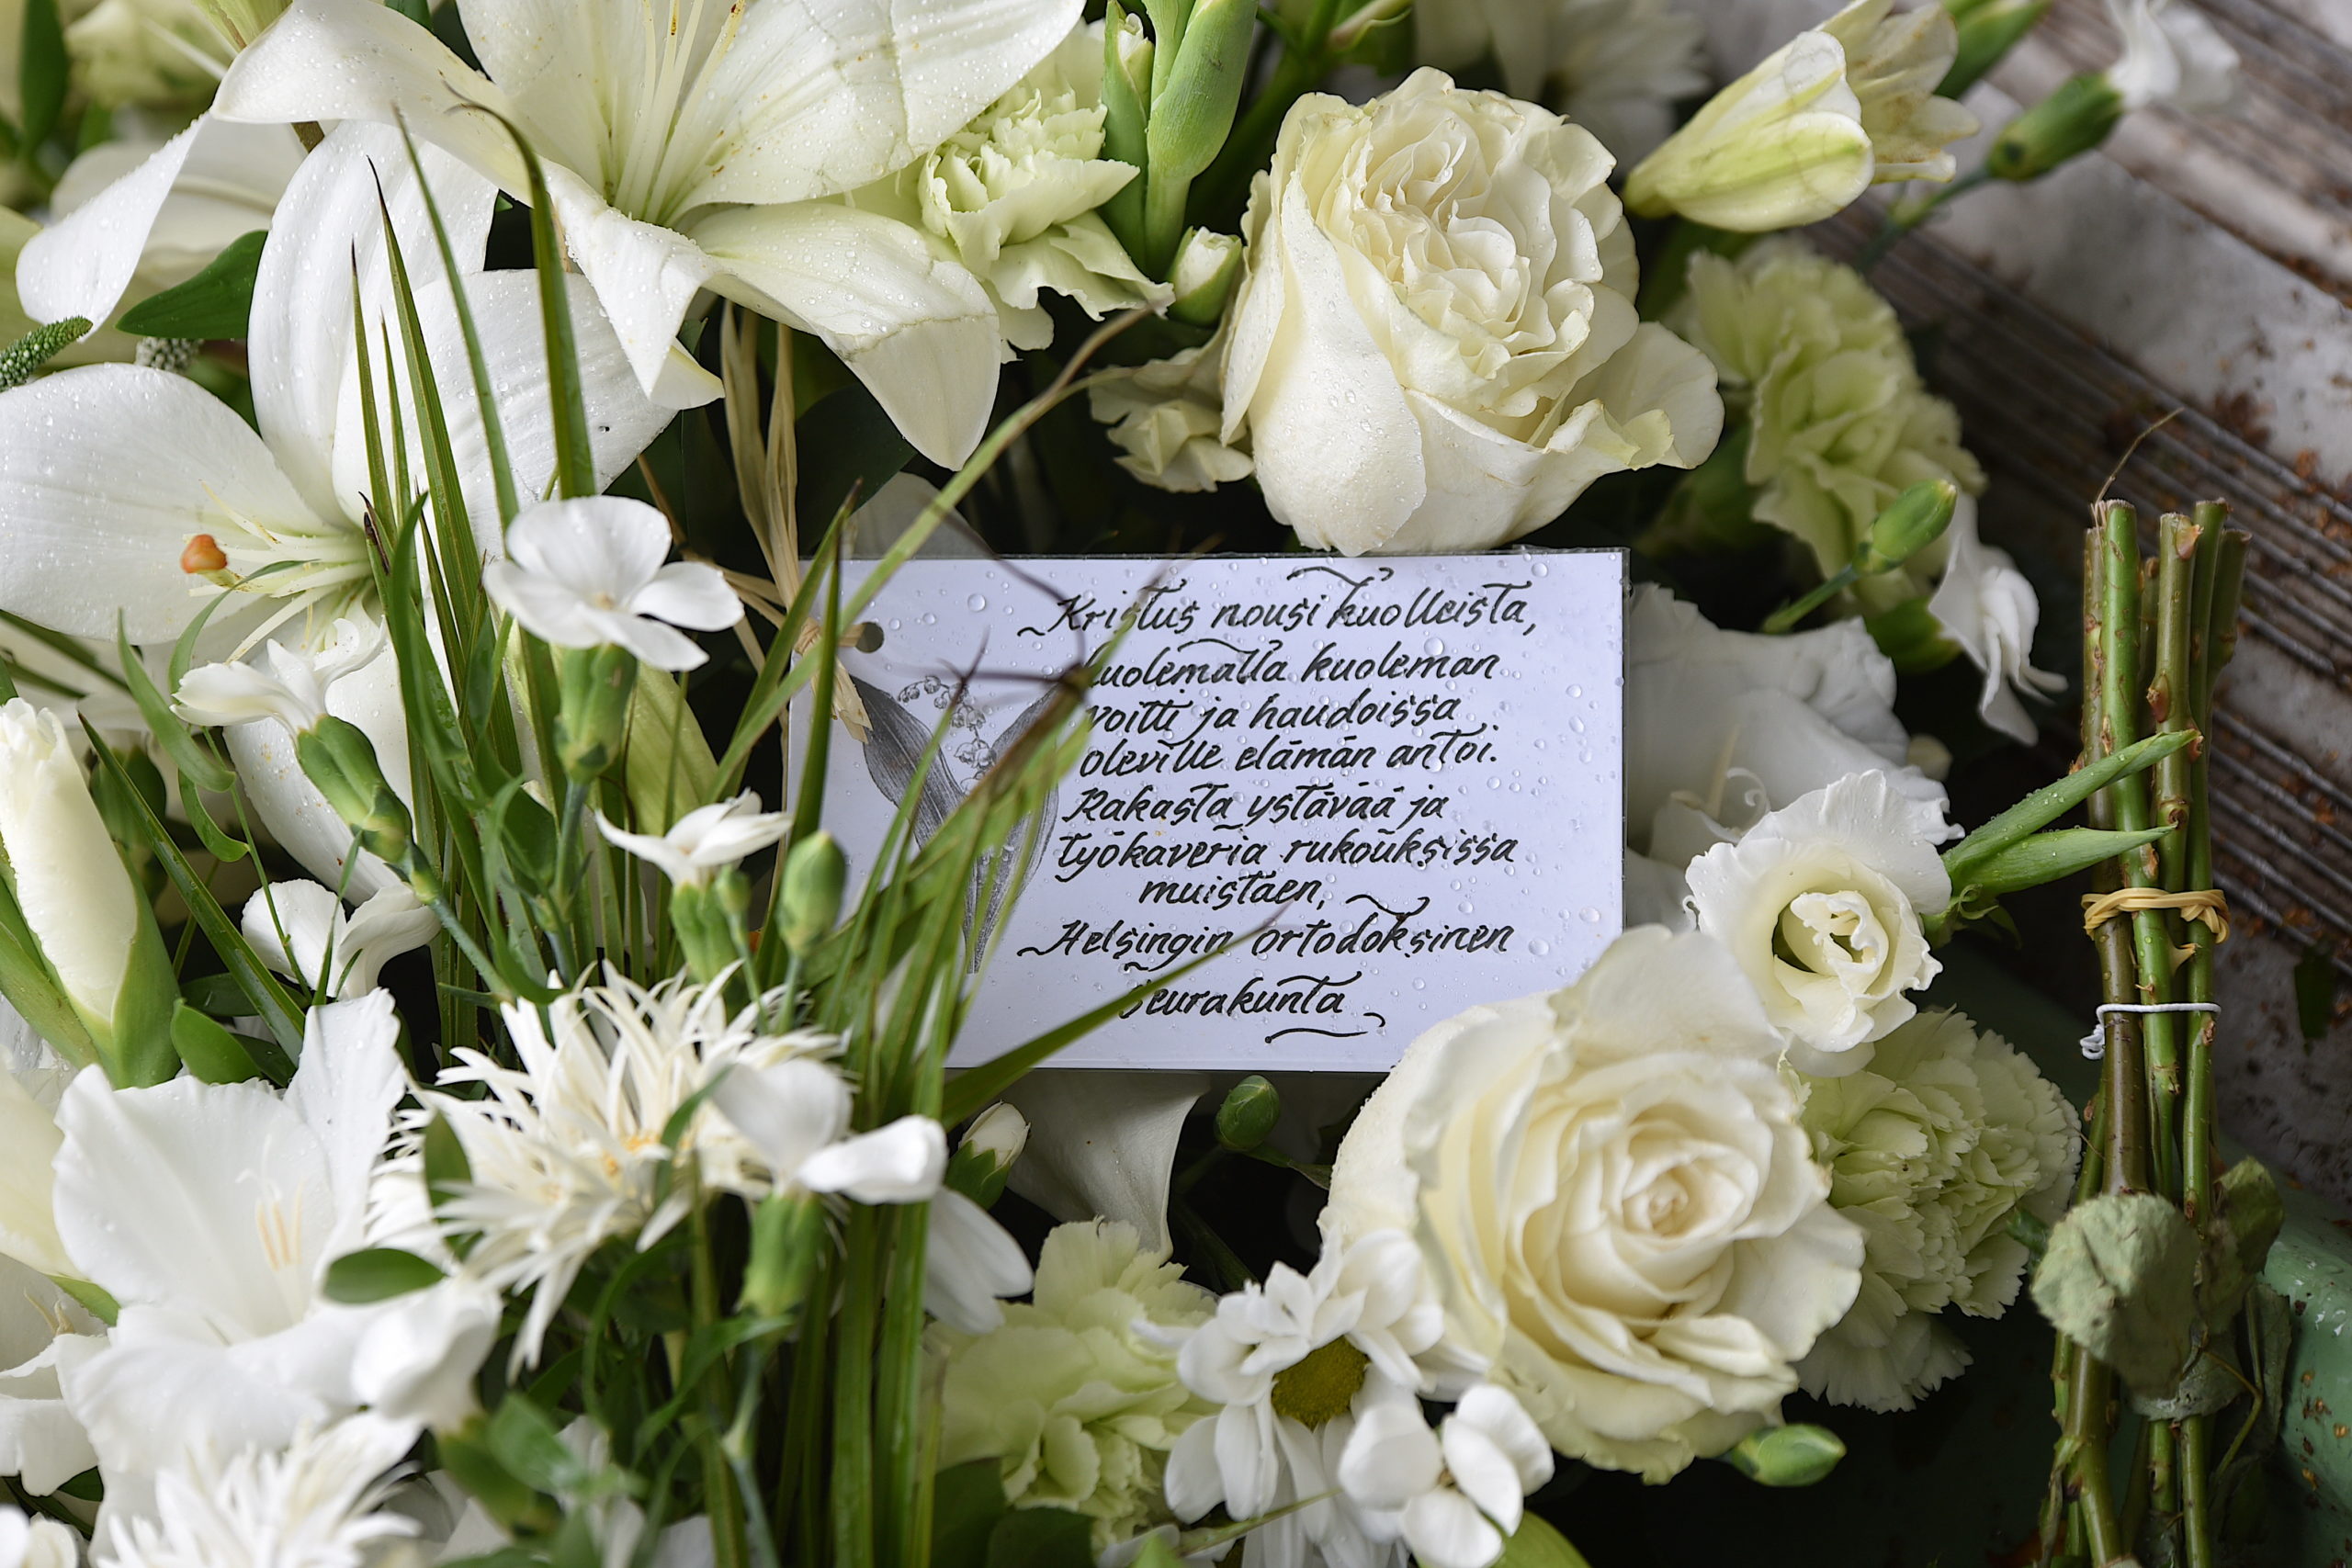 Kristus nousi kuolleista,
kuolemalla kuoleman
voitti ja haudoissa
oleville elämän antoi.
Rakasta ystävää ja
työkaveria rukouksissa
muistaen,
Helsingin ortodoksinen
seurakunta